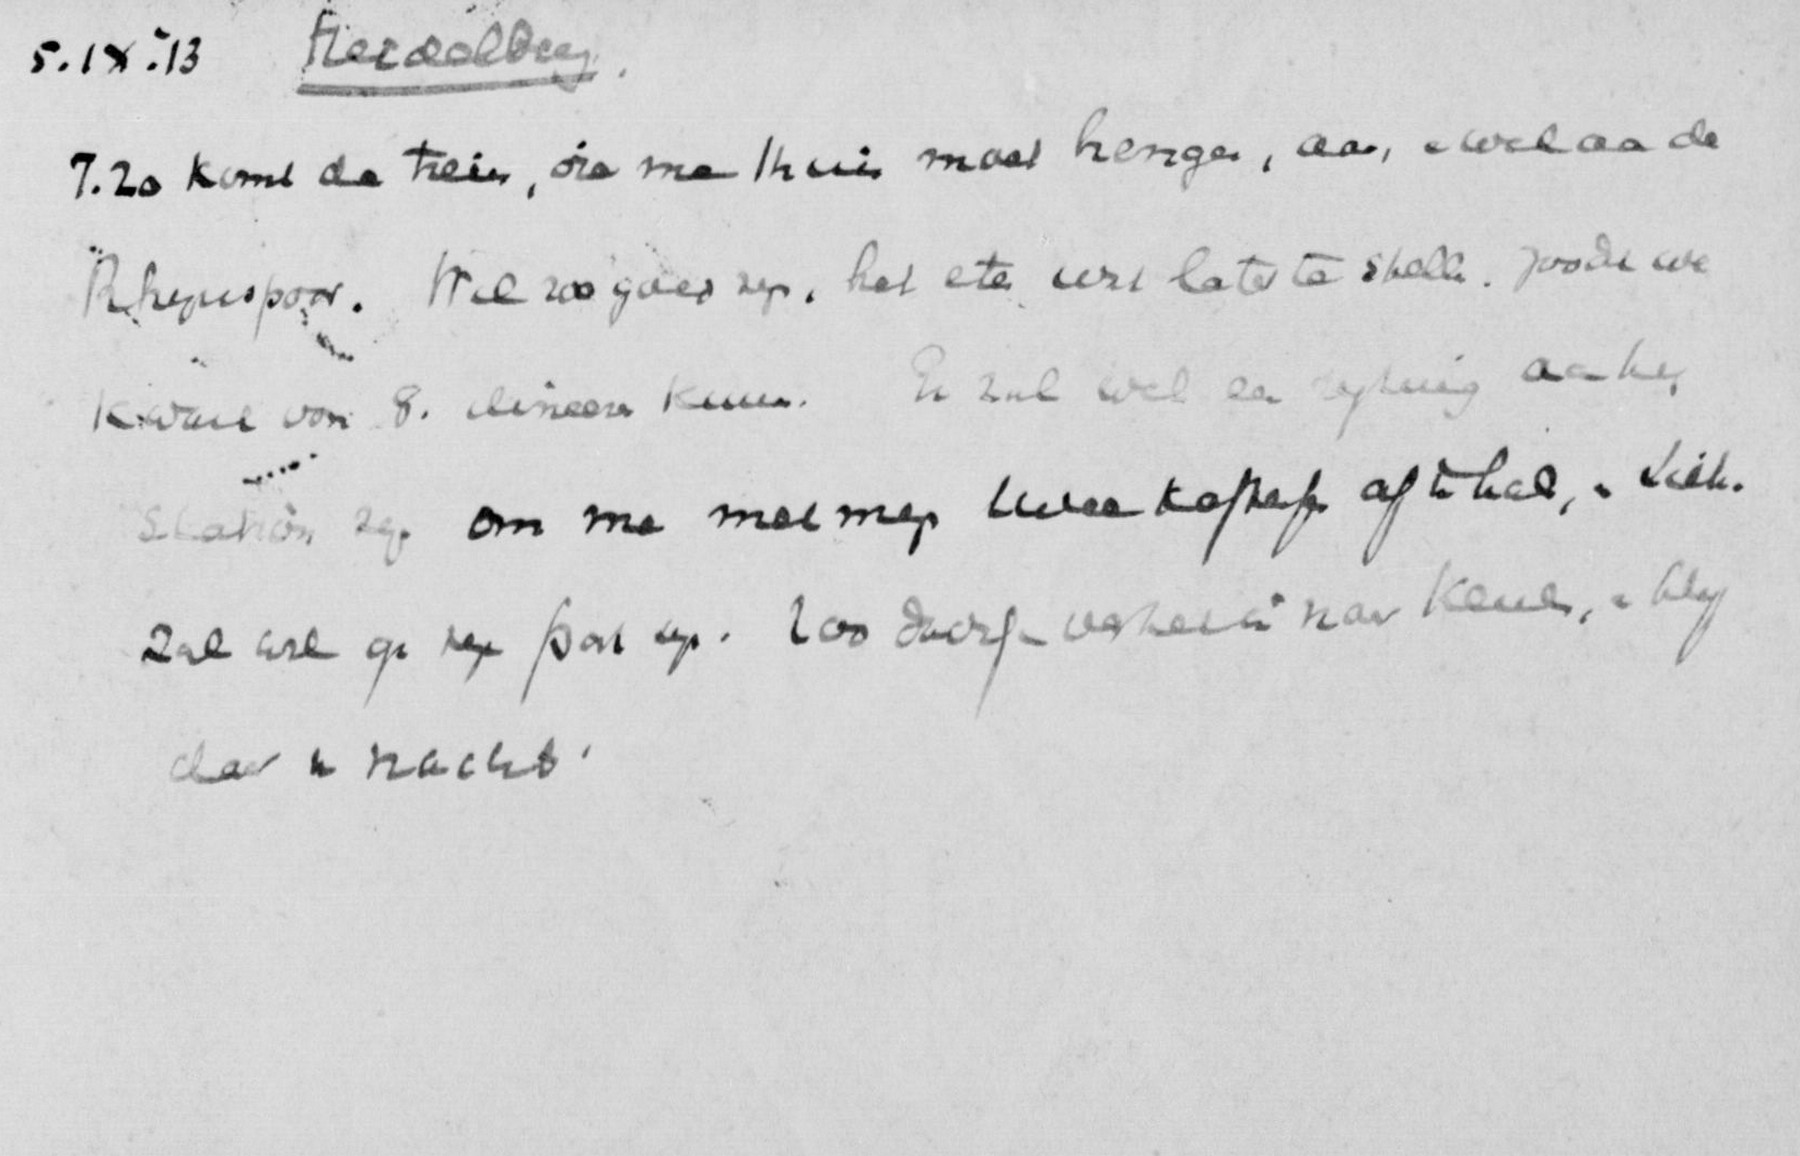 5.IX.'13 Heidelberg.
7.20 komt de trein, die me thuis moet brengen, aan, en wel aan de
Rhijnspoor. Wil zoo goed zijn, het eten wat later te stellen. zoodat we
kwart voor 8. dineeren kunnen. Er zal wel een rijtuig aan het
station zijn om me met mijn twee koffertjes af te halen, en
zal wel op zijn post zijn. Zoo naar Keulen, en blijf
daar 'n nacht.